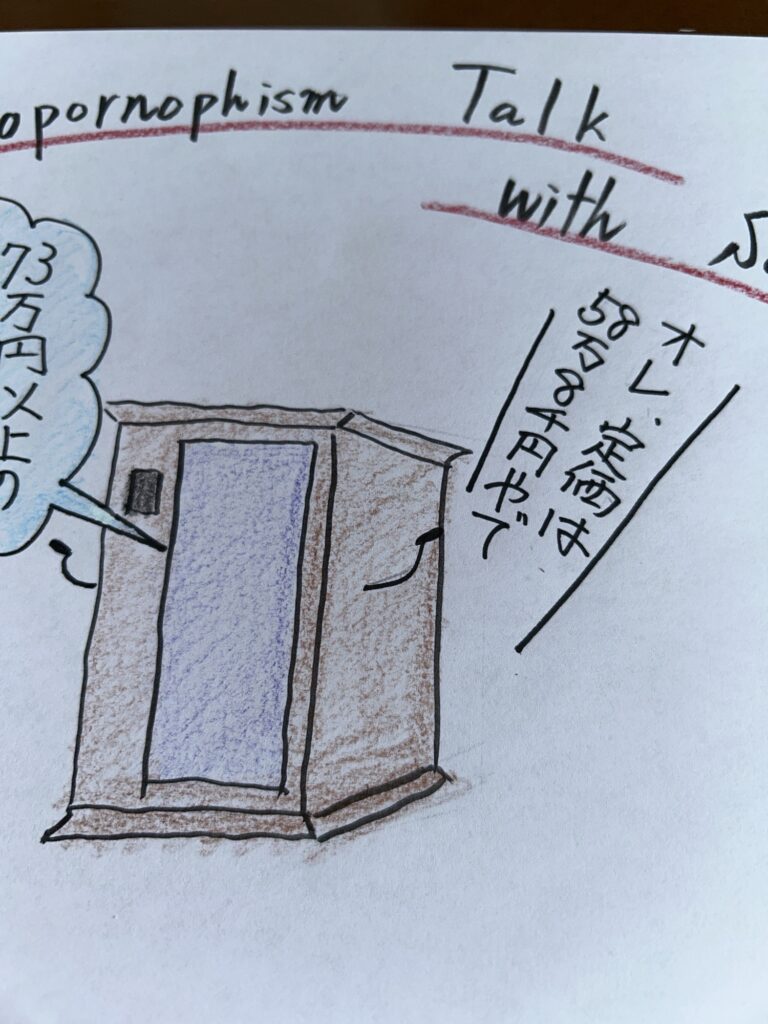 opornophism Talk
with
73
万円以上の
オレ、定価は
58万8千円やで